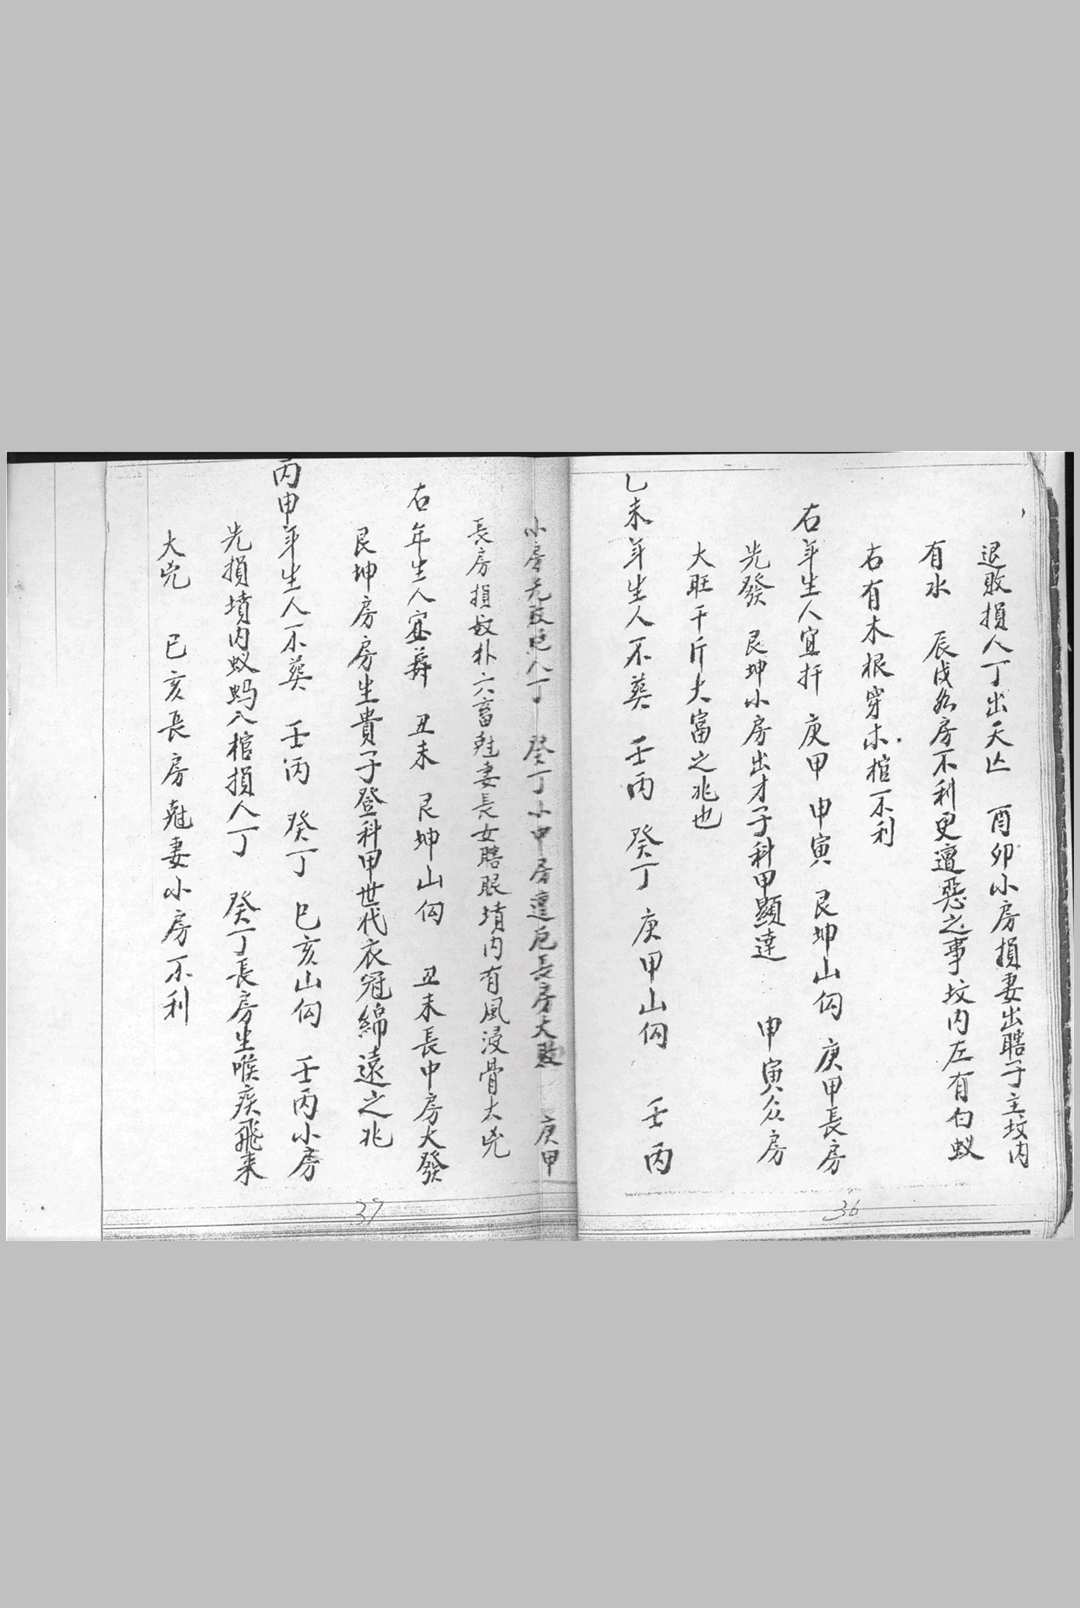 退敗損人丁出天亡 酉卯小房損妻出瞎子主坟内
有水 辰戌各房不利更遭惡之事坟内左有白蚁
右有木根穿木棺不利
右年生人宜扦 庚甲 申寅 艮坤山向 庚甲長房
先發 艮坤小房出才子科甲顯達 申寅众房
大旺千斤大富之兆也
乙未年生人不葬 壬丙 癸丁 庚甲山向 壬丙
小房 人丁 癸丁小中房遭 長房大敗 庚甲
長房損奴朴六畜尅妻長女瞎眼墳内有風浸骨大兇
右年生人宜葬 丑未 艮坤山向 丑未長中房大發
艮坤房房生貴子登科甲世代衣冠綿遠之兆
丙申年生人不葬 壬丙 癸丁 巳亥山向 壬丙小房
先損墳内蚁蚂入棺損人丁 癸丁長房生喉疾飛来
大兇 巳亥長房尅妻小房不利
36
37